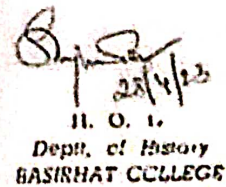 28/4/23
H. O. D.
Deptt. of History
BASIRHAT COLLEGE